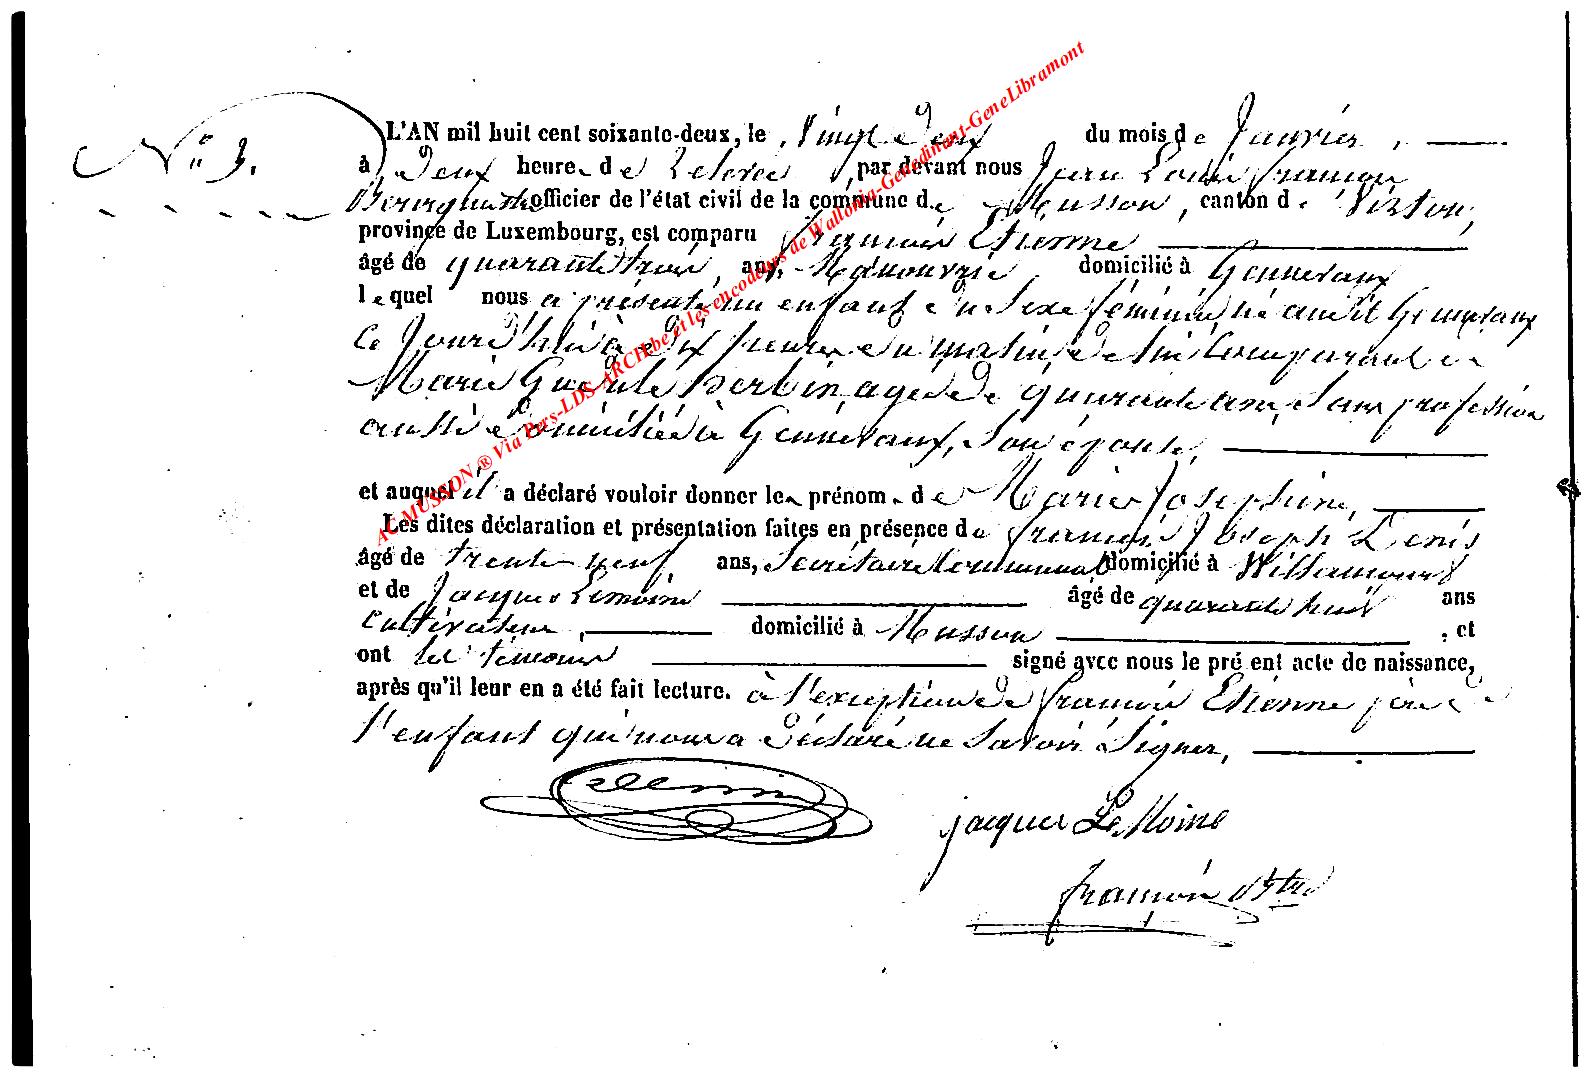 N° 3.
L'AN mil huit cent soixante-deux, le Vingt deux du mois de Janvier,
à Deux heures de Relevée, par devant nous Jean Louis François
Bourgmestre officier de l'état civil de la commune de Musson, canton de Virton,
province de Luxembourg, est comparu François Etienne
âgé de quarante trois, ans, Manouvrié, domicilié à Gennevaux
lequel nous a présenté un enfant du Sexe féminin, né audit Gennevaux
ce Jourd'hui à dix heures du matin, de lui Comparant et
Marie Gudule Herbin, agée de quarante ans, Sans profession
aussi domiciliée à Gennevaux, Son épouse,
et auquel il a déclaré vouloir donner les prénoms de Marie Joséphine,
Les dites déclaration et présentation faites en présence de François Joseph Denis
âgé de trente neuf ans, Secrétaire Communal domicilié à Willancourt
et de Jacques Lemoine âgé de quarante huit ans
Cultivateur, domicilié à Musson, et
ont les témoins signé avec nous le pré ent acte de naissance,
après qu'il leur en a été fait lecture. à l'exception de François Etienne père de
l'enfant qui nous a déclaré ne Savoir Signer,
Denis
jacques Le Moine
françois
AC MUSSON ® Via Pers-LDS-ARCH.be et les encodeurs de Wallonia-Genedinant-GeneLibramont